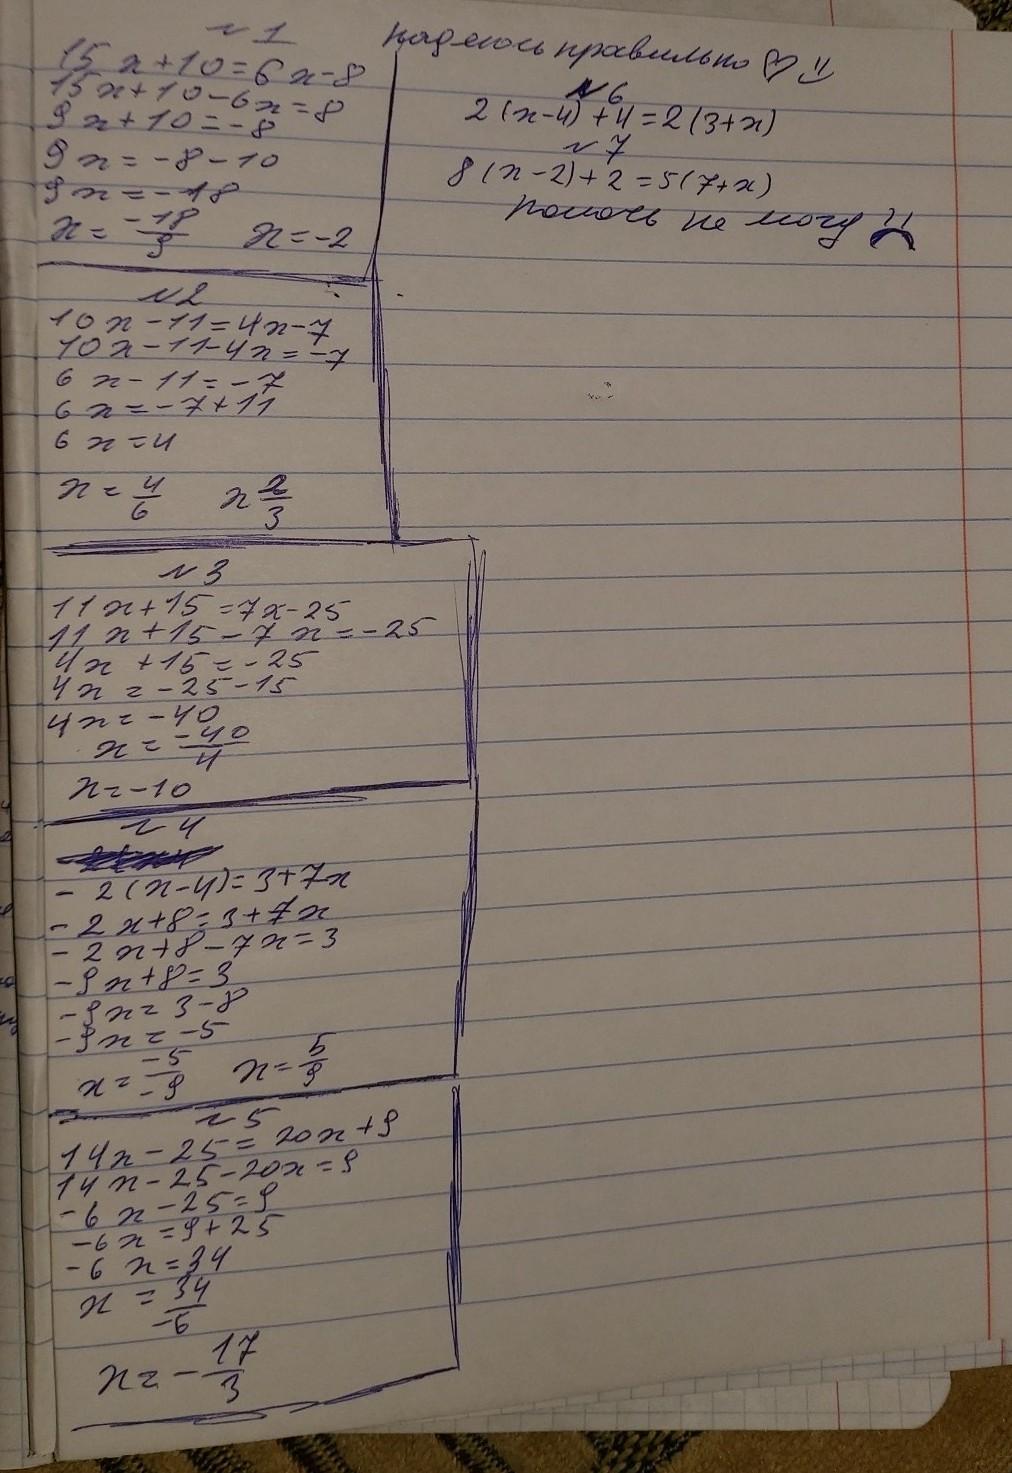 №1
15x+10=6x-8
15x+10-6x=8
9x+10=-8
9x=-8-10
9x=-18
x= -18/9 x=-2
№2
10x-11=4x-7
10x-11-4x=-7
6x-11=-7
6x=-7+11
6x=4
x= 4/6 x 2/3
№3
11x+15=7x-25
11x+15-7x=-25
4x+15=-25
4x=-25-15
4x=-40
x= -40/4
x=-10
№4
-2(x-4)=3+7x
-2x+8=3+7x
-2x+8-7x=3
-9x+8=3
-9x=3-8
-9x=-5
x= -5/-9 x= 5/9
№5
14x-25=20x+9
14x-25-20x=9
-6x-25=9
-6x=9+25
-6x=34
x= 34/-6
x=- 17/3
надеюсь правильно ♡
№6
2(x-4)+4=2(3+x)
№7
8(x-2)+2=5(7+x)
помочь не могу